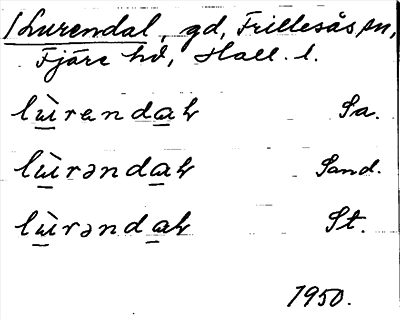 /Lurendal, gd, Frillesås sn,
Fjäre hd, Hall. l.
lùrendaɫ Sa.
lùrəndaɫ Sand.
lùrəndaɫ St.
1950.